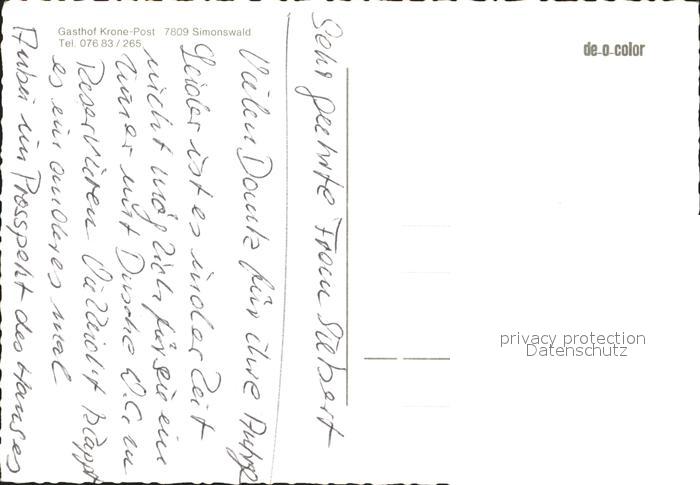 Gasthof Krone-Post 7809 Simonswald
Tel. 076 83 / 265
de-o-color
Sehr geehrte Frau Siebert
Vielen Dank für ihre Anfrg
Leider ist es in der Zeit
nicht möglich für sie ein
Zimmer mit Dusche W.C. zu
Reservieren Vielleicht klappt
es ein anderes mal
Anbei ein Prosspekt des Hauses
privacy protection
Datenschutz